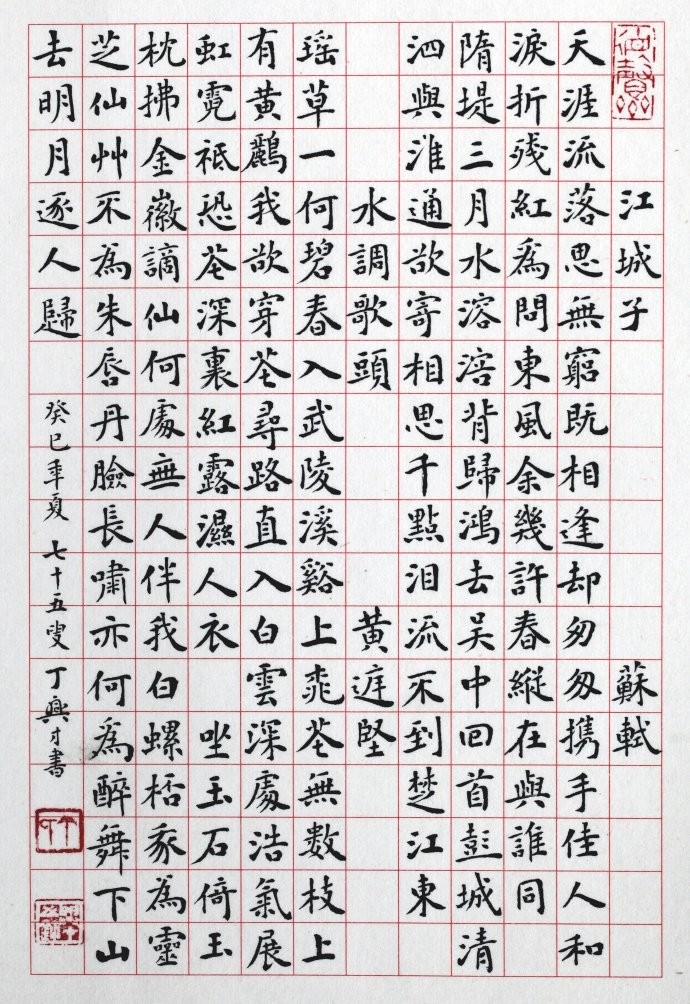 江城子 蘇軾
天涯流落思無窮既相逢却匆匆携手佳人和
淚折残紅爲問東風余幾許春縱在與誰同
隋堤三月水溶溶背歸鴻去吴中回首彭城清
泗與淮通欲寄相思千點泪流不到楚江東
水調歌頭 黄庭堅
瑶草一何碧春入武陵溪谿上桃花無数枝上
有黄鸝我欲穿花尋路直入白雲深處浩氣展
虹霓祗恐花深裏紅露濕人衣 坐玉石倚玉
枕拂金徽謫仙何處無人伴我白螺桮我為靈
芝仙艸不為朱唇丹臉長嘯亦何為醉舞下山
去明月逐人歸 癸巳年夏 七十五叟 丁興才書